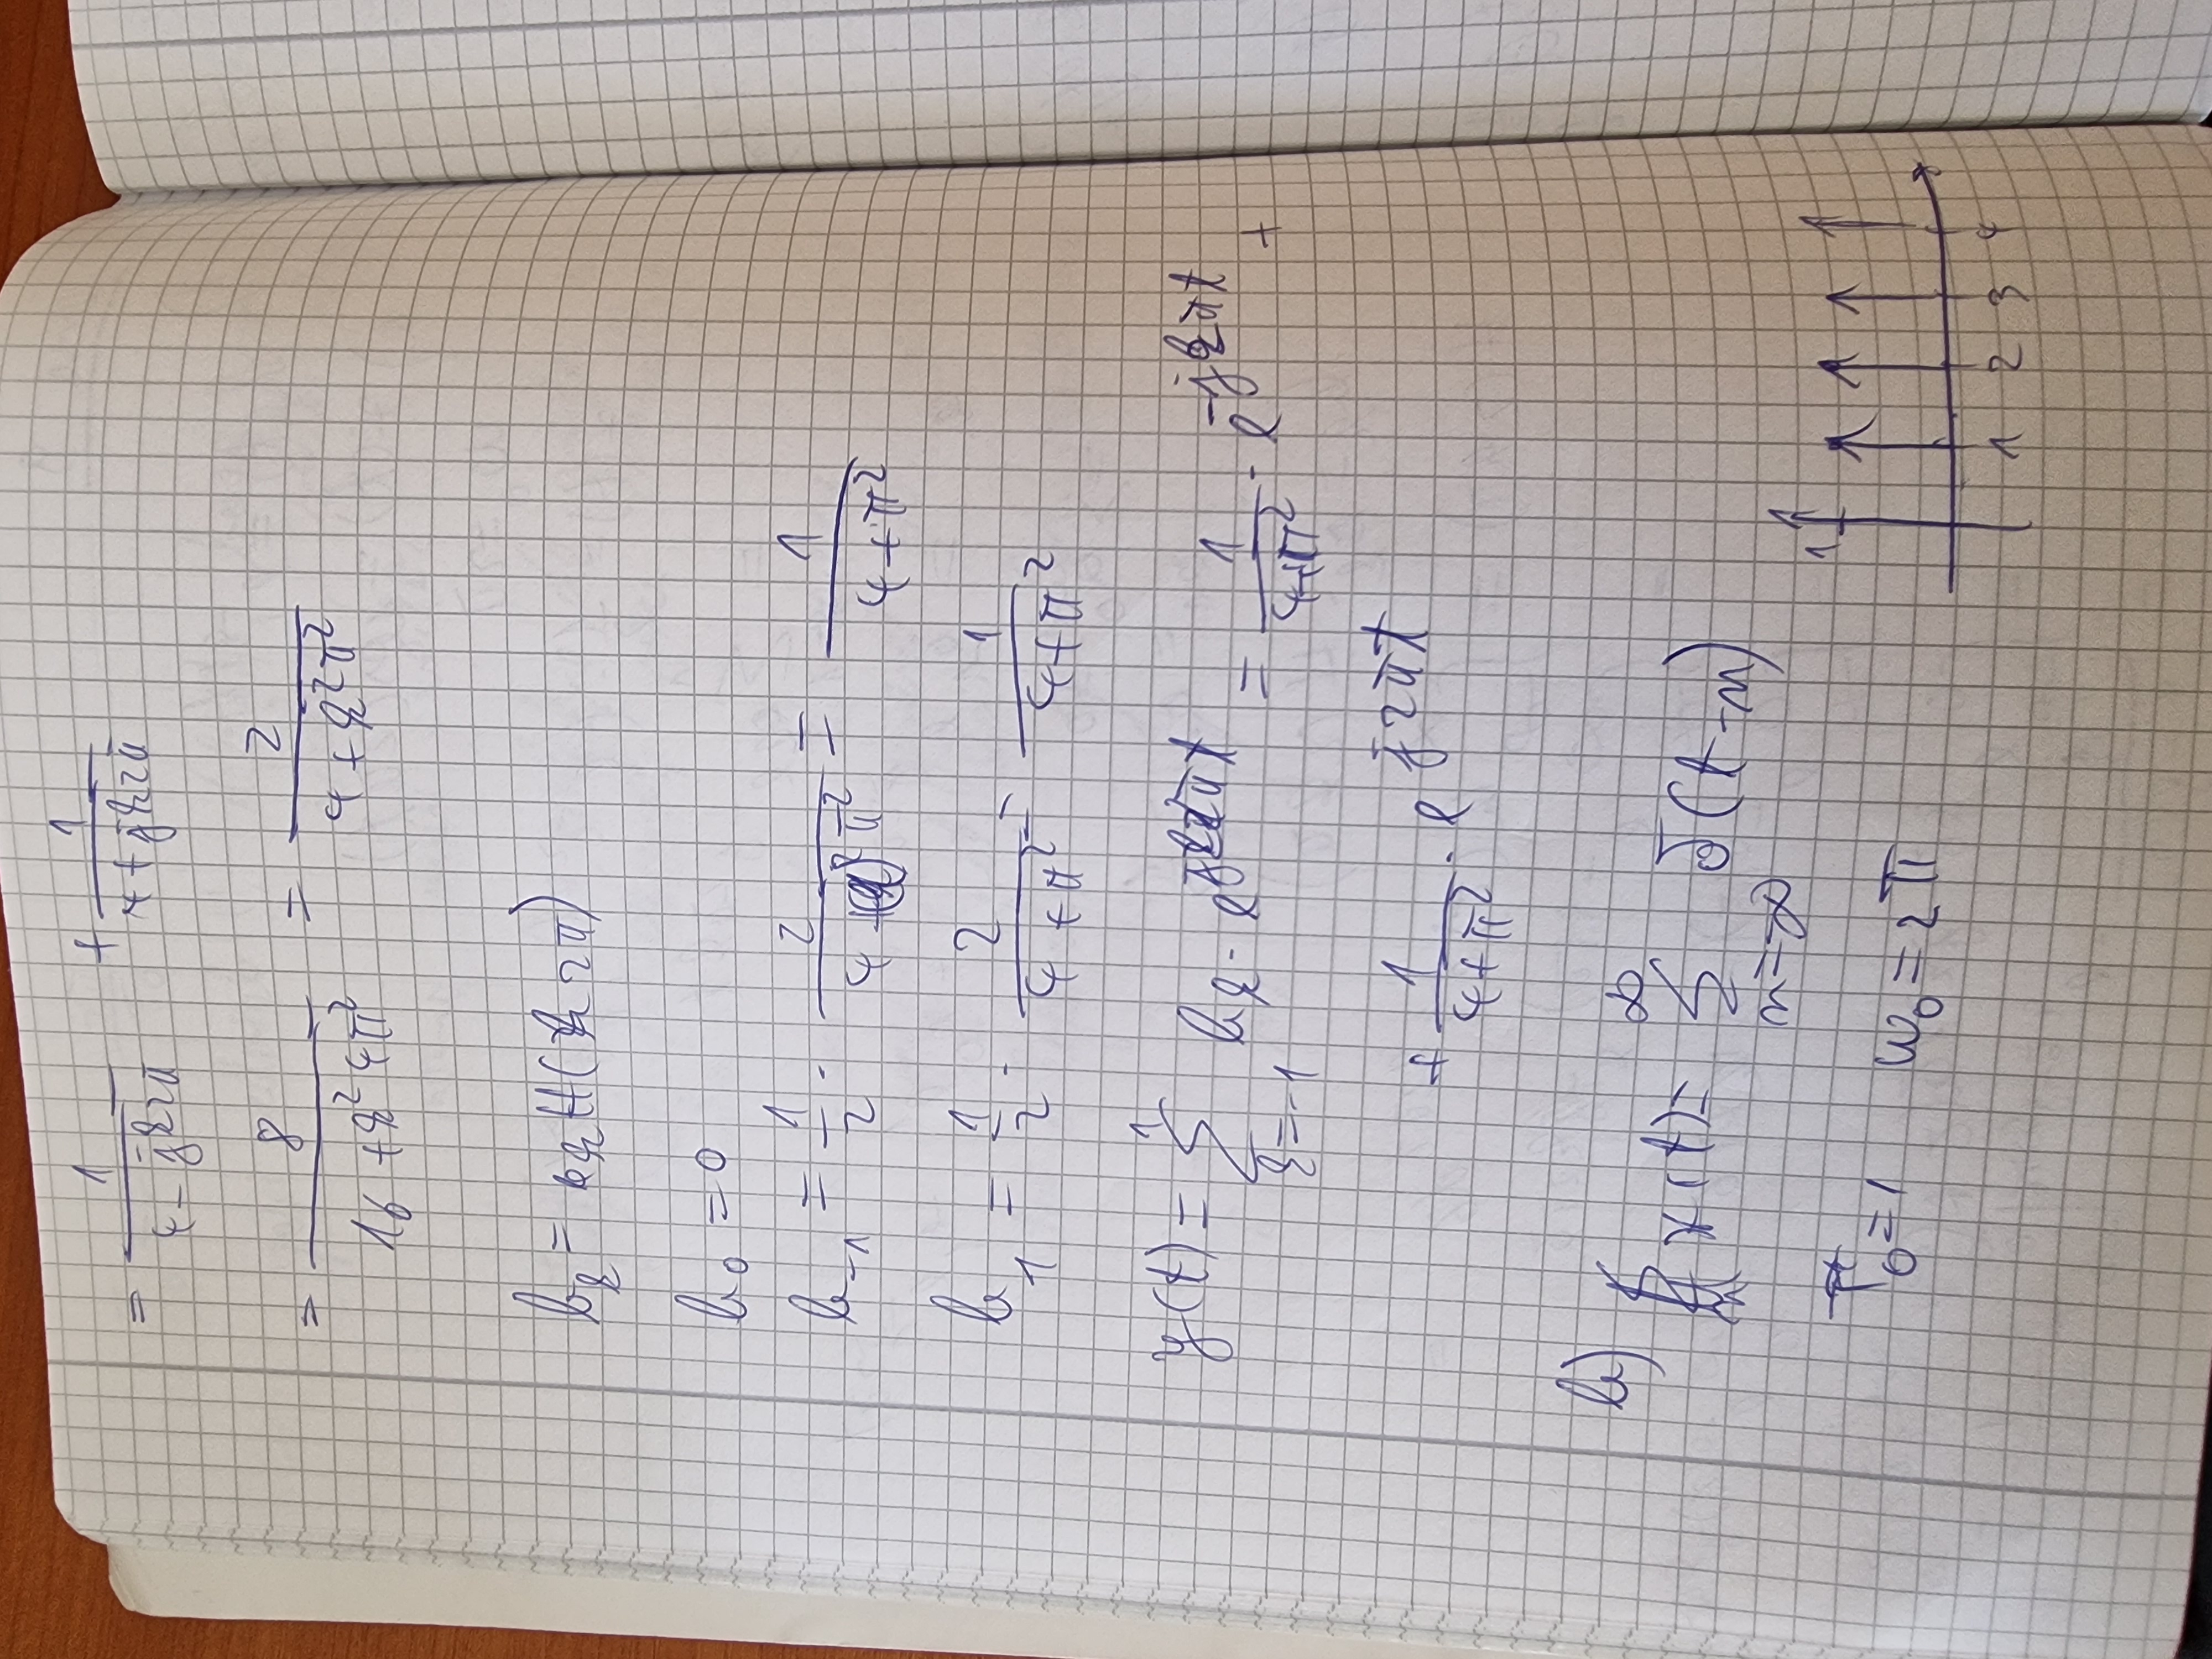 = 1/(4-jk2π) + 1/(4+jk2π)
= 8/(16+k²4π²) = 2/(4+k²π²)
b_k = a_k H(k2π)
b_0 = 0
b_-1 = 1/2 · 2/(4+π²) = 1/(4+π²)
b_1 = 1/2 · 2/(4+π²) = 1/(4+π²)
y(t) = Σ_{k=-1}^{1} b_k · e^{jk2πt} = 1/(4+π²) · e^{-j2πt} +
+ 1/(4+π²) · e^{j2πt}
b) x(t) = Σ_{n=-∞}^{∞} δ(t-n)
1
T_0 = 1 ω_0 = 2π
1 2 3 4